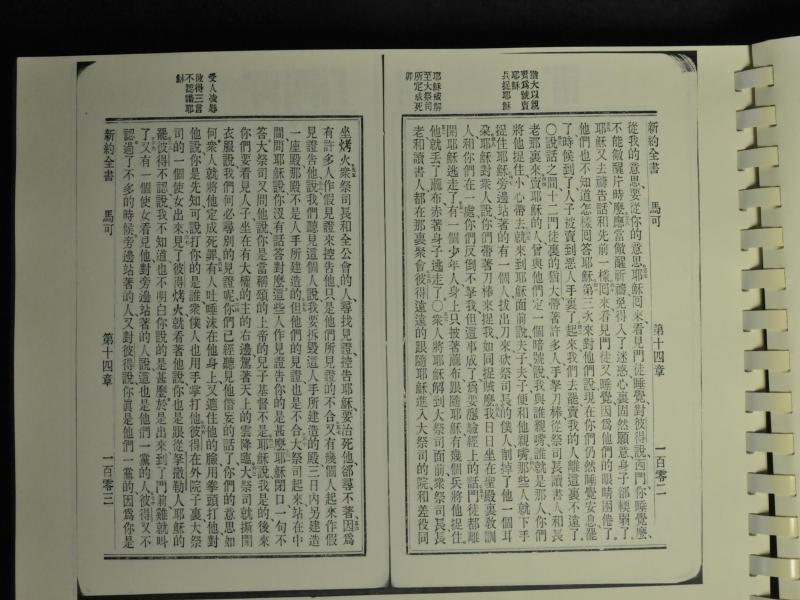 新約全書 馬可 第十四章 一百零二
從我的意思、要從你的意思耶穌回來看見門徒睡覺、對彼得說、西門你睡覺麼、
不能儆醒片時麼應當儆醒祈禱免得入了迷惑心裏固然願意身子卻輭弱了
耶穌又去禱告話和先前一樣回來看見門徒又睡覺因爲他們的眼睛困倦了
他們也不知道怎樣回答耶穌第三次來對他們說現在你們仍然睡覺安息罷
了時候到了人子被賣到惡人手裏了起來我們去罷賣我的人離這裏不遠了
○說話之間十二門徒裏的猶大帶著許多人手拏刀棒從祭司長讀書人和長
老那裏來賣耶穌的人曾與他們定一個暗號說我與誰親嘴誰就是那人你們
將他捉住小心帶去就來到耶穌面前說夫子夫子便和他親嘴那些人就下手
捉住耶穌旁邊站著的有一個人拔出刀來砍祭司長的僕人削掉了他一個耳
朶耶穌對衆人說你們帶著刀棒來捉我如同捉賊麼我日日坐在聖殿裏教訓
人和你們在一處你們反倒不拏我但這事成了爲要應驗經上的話門徒都離
開耶穌逃走了有一個少年人身上只披著蔴布跟隨耶穌有幾個兵將他捉住
他就丟了蔴布赤著身子逃走了○衆人將耶穌解到大祭司面前衆祭司長長
老和讀書人都在那裏聚會彼得遠遠的跟隨耶穌進入大祭司的院和差役同
猶大以親
嘴爲號賣
耶穌
兵捉耶穌
耶穌被解
至大祭司
所定成死
罪
坐烤火衆祭司長和全公會的人、尋找見證、控告耶穌、要治死他卻尋不著、因爲
有許多人作假見證來控告他只是他們所見證的不合又有幾個人起來作假
見證告他說我們聽見這個人說我要拆毀這人手所建造的殿三日內另建造
一座殿那殿不是人手所建造的但他們的見證也是不合大祭司起來站在中
間問耶穌說你沒有話答對麼這些人作見證告你的是甚麼耶穌閉口一句不
答大祭司又問他說你是當稱頌的上帝的兒子基督不是耶穌說我是的後來
你們要看見人子坐在有大權的主的右邊駕著天上的雲降臨大祭司就撕開
衣服說我們何必尋別的見證呢你們已經聽見他僭妄的話了你們的意思如
何衆人就將他定成死罪有人吐唾沫在他身上又遮住他的臉用拳頭打他對
他說你是先知可說打你的是誰衆僕人也用手掌打他彼得在外院子裏大祭
司的一個使女出來見了彼得烤火就看著他說你也是跟從拏撒勒人耶穌的
罷彼得不認說我不知道也不明白你說的是甚麼於是出來到了門前雞就叫
了又有一個使女看見他對旁邊站著的人說這也是他們一黨的人彼得又不
認過了不多的時候旁邊站著的人又對彼得說你眞是他們一黨的因爲你是
新約全書 馬可 第十四章 一百零三
受人凌辱
彼得三言
不認識耶
穌